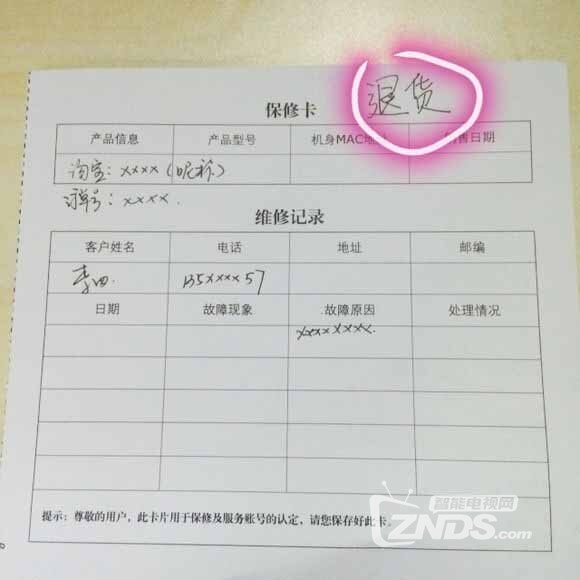 退货
保修卡
产品信息 产品型号 机身MAC地址 销售日期
淘宝：xxxx（昵称）
订单号：xxxx.
维修记录
客户姓名 电话 地址 邮编
李四. 135xxxx57
日期 故障现象 故障原因 处理情况
xxxxxxxx.
提示：尊敬的用户，此卡片用于保修及服务账号的认定，请您保存好此卡。
智能电视网
ZNDS.com